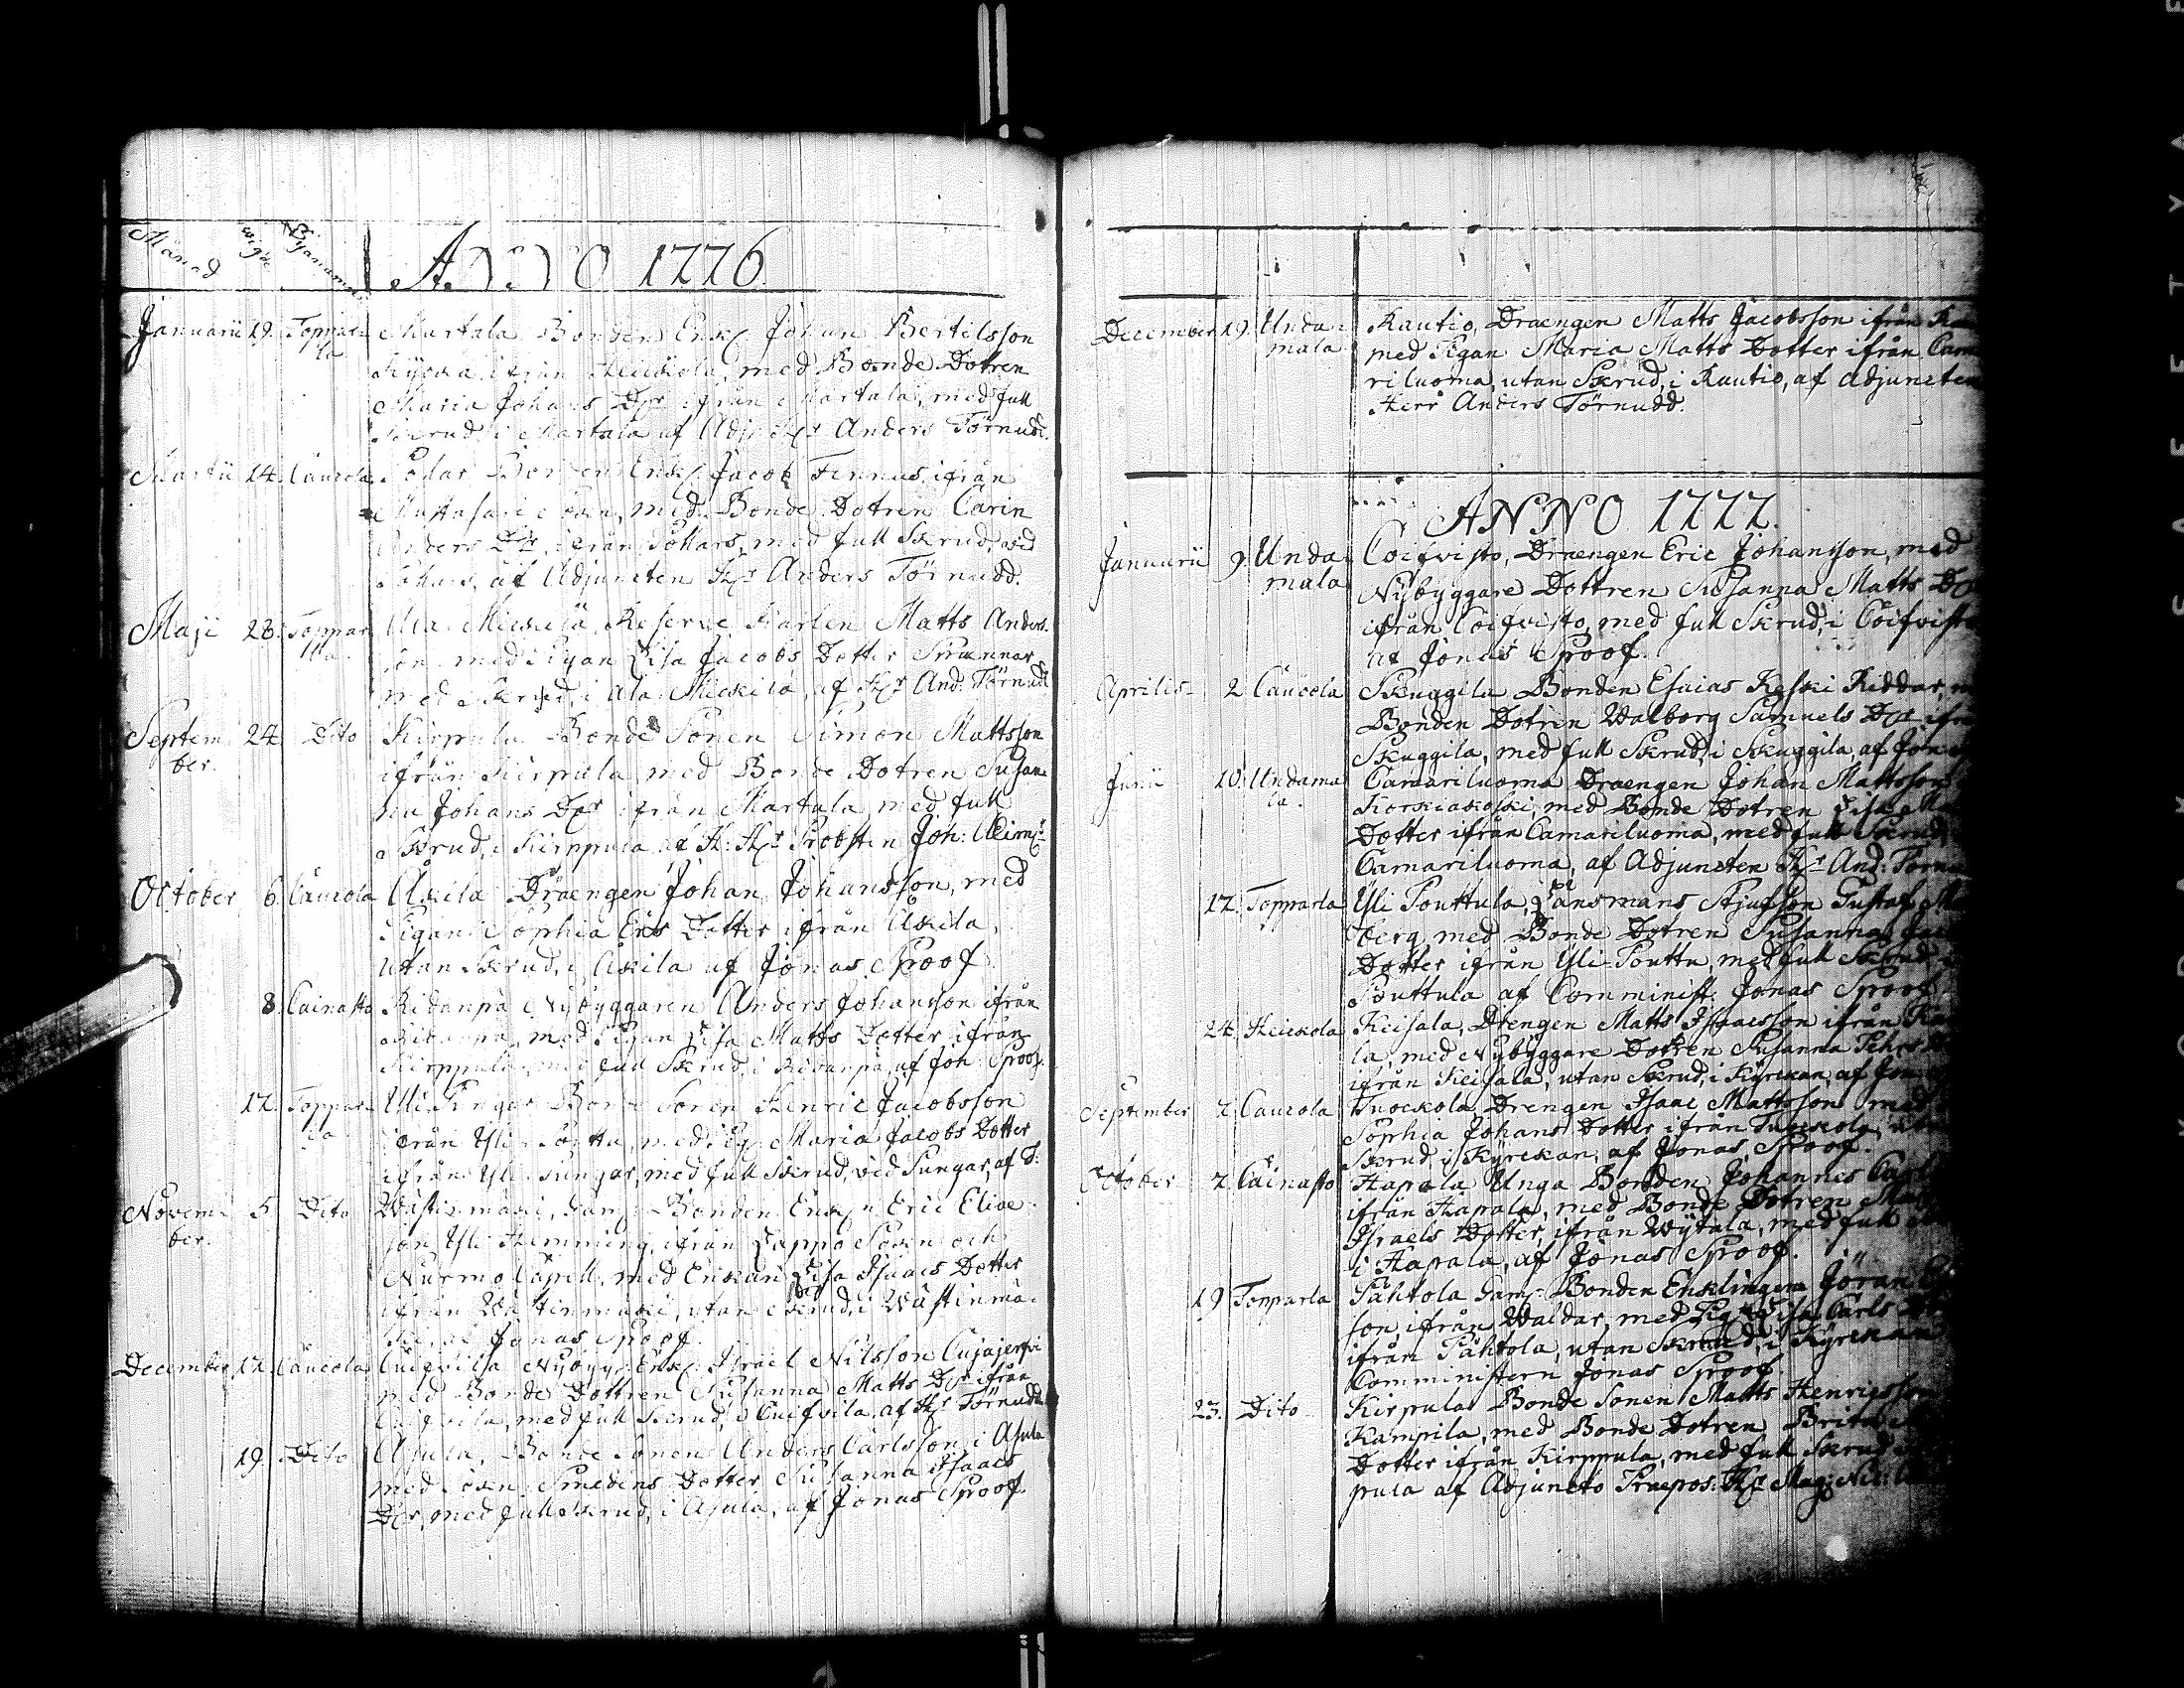 Månad wigde Byanamn
ANNO 1776
Januarii 19. Toppar- Martala Bonden Enkl. Johan Bertilsson
la Kÿcka ifrån Heickola, med Bonde Dotren
Maria Johans Dr ifrån Martala, med full
Skrud, i Martala af Adj. Hr Anders Törnudd.
Martii 14. Caucola Bonden Enkl. Jacob Finnus ifrån
Socken, med Bonde Dotren Carin
Anders Dr, ifrån Sottars, med full Skrud, vid
af Adjuncten Hr Anders Törnudd.
Maji 28. Toppar Ala Mickilä, Reserve Karlen Matts Anders-
la son med Pigan Lisa Jacobs Dotter
med Skrud, i Ala Mickilä, af Hr And: Törnudd
Septem- 24. Dito Kirpula Bonde Sonen Simon Mattsson
ber. ifrån Kirpula med Bonde Dotren Susan-
na Johans Dr ifrån Martala med full
Skrud, i Kirppula af H: Hr Probsten Joh:
October 6. Caucola Åkila Draengen Johan Johansson, med
Pigan Sophia Ers Dotter ifrån Åkila,
utan Skrud, i Åkila af Jonas Sproof
8. Cainasto Ridanpä Nybyggaren Anders Johansson ifrån
Ridanpä, med Pigan Lisa Matts Dotter ifrån
Kirppula, med full Skrud, i Ridanpä, af Joh: Sproof.
17. Toppar- Yli Pungar Bonde Sonen Henric Jacobsson
la ifrån Yli Pouttu, med Pig. Maria Jacobs Dotter
ifrån Yli Pungar, med full Skrud, vid Pungar, af
Novem- 5. Dito Wästinmäki, Gaml. Bonden Enkl:n Eric
ber. son Yli Hemming, ifrån Lappo Soken och
Nurmo Capell, med Enkan Lisa Isaacs Dotter
ifrån Wästinmäki, utan Skrud, i Wästinmä-
ki, af Jonas Sproof.
December 17. Caucola Nybygg: Enkl. Israel Nilsson
med Bonde Dottren Susanna Matts Dr ifrån
med full Skrud, i af Hr Törnudd
19. Dito Asula, Bonde Sonen Anders Carlsson i Asula
med Soken Smedens Dotter Susanna Isaacs
Dr, med full Skrud, i Asula, af Jonas Sproof.
December 19. Unda- Rautio, Draengen Matts Jacobsson ifrån
mala med Pigan Maria Matts Dotter ifrån Cama
riluoma, utan Skrud, i Rautio, af Adjuncten
Herr Anders Törnudd.
ANNO 1777.
Januarii 9. Unda- Coifvisto, Draengen Eric Johansson, med
mala Nybyggare Dottren Susanna Matts
ifrån Coifvisto, med full Skrud, i Coifvisto
af Jonas Sproof.
Aprilis 2. Caucola Skuggila Bonden Esaias Keski Riddar,
Bonden Dotren Walborg Samuels Dr
Skuggila, med full Skrud, i Skuggila af
Junii 10. Undama Camariluoma Draengen Johan Mattsson
la. Korkiakoski, med Bonde Dotren Lisa
Dotter ifrån Camariluoma, med full Skrud,
Camariluoma, af Adjuncten Hr And:
17. Topparla Yli Pouttula, Länsmans Stjufson Gustaf
berg, med Bonde Dotren Susanna
Dotter ifrån Yli-Pouttu, med full Skrud
Pouttula af Comminist: Jonas Sproof
24. Heickola Keisala, Drengen Matts Isaacsson ifrån
la, med Nybyggare Dottren Susanna Pehrs
ifrån Keisala, utan Skrud, i Kyrckan, af
September 7. Caucola Tuockola Drengen Isaac Mattsson med
Sophia Johans Dotter ifrån Tuockola
Skrud, i Kyrckan, af Jonas Sproof.
October 7. Cainasto Hapala Unga Bonden Johannes
ifrån Hapala, med Bonde Dotren
Israels Dotter, ifrån Wytala, med full
i Hapala, af Jonas Sproof.
19 Topparla Pähtola Gaml: Bonden Enklingen Jöran
son, ifrån Waldar, med Pig: Lisa Carls
ifrån Pähtola, utan Skrud, i Kyrckan
Comministern Jonas Sproof.
23. Dito Kirpula Bonde Sonen Matts Henricsson
Kampila, med Bonde Dotren Brita
Dotter ifrån Kirppula, med full Skrud
pula af Adjuncto Praepos: Hr Mag: